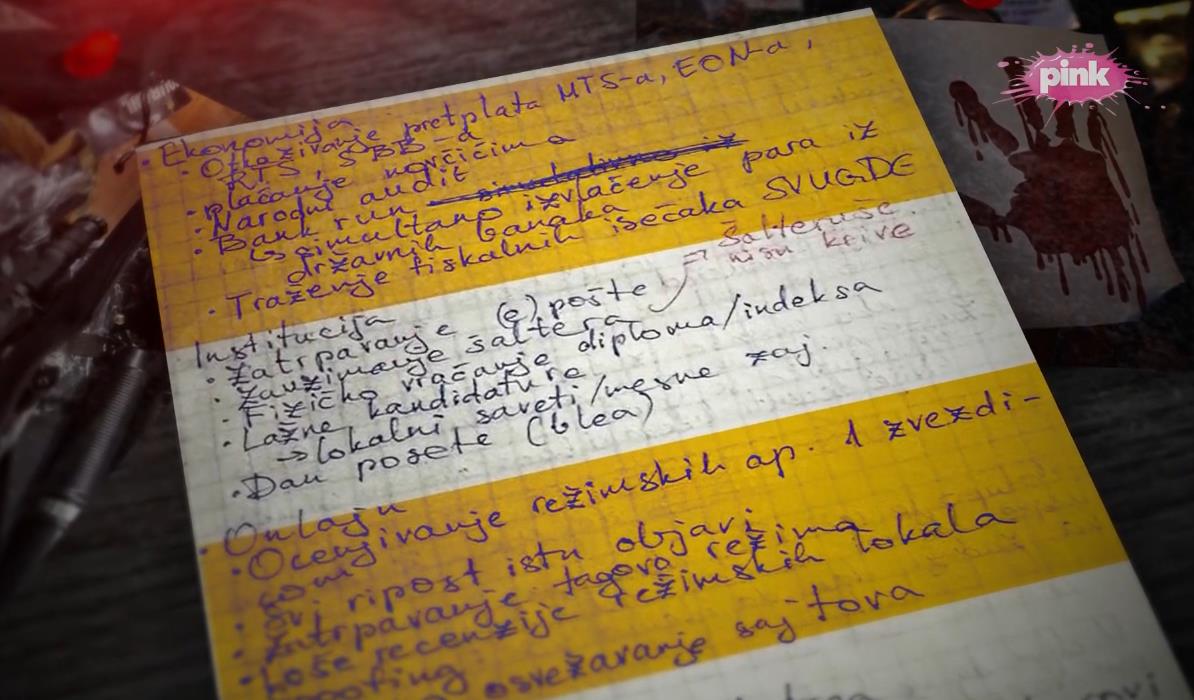 pink
• Ekonomija
• Otkazivanje pretplata MTS-a, EON-a,
RTS, SBB-a
• plaćanje novčićima
• Narodni audit
• Bank run
↳ simultano izvlačenje para iz
državnih banaka
• Traženje fiskalnih isečaka SVUGDE
Institucija
• Zatrpavanje (e) pošte
→ Šalteruše
nisu krive
• Zauzimanje šaltera
• Fizičko vraćanje diploma/indeksa
• Lažne kandidature
→ lokalni saveti/mesne zaj.
• Dan posete (blea)
• Onlajn
• Ocenjivanje režimskih ap. 1 zvezdi-
com
• Svi ripost istu objavi
• Zatrpavanje tagova režima
• Loše recenzije režimskih lokala
osvežavanje saj-tova